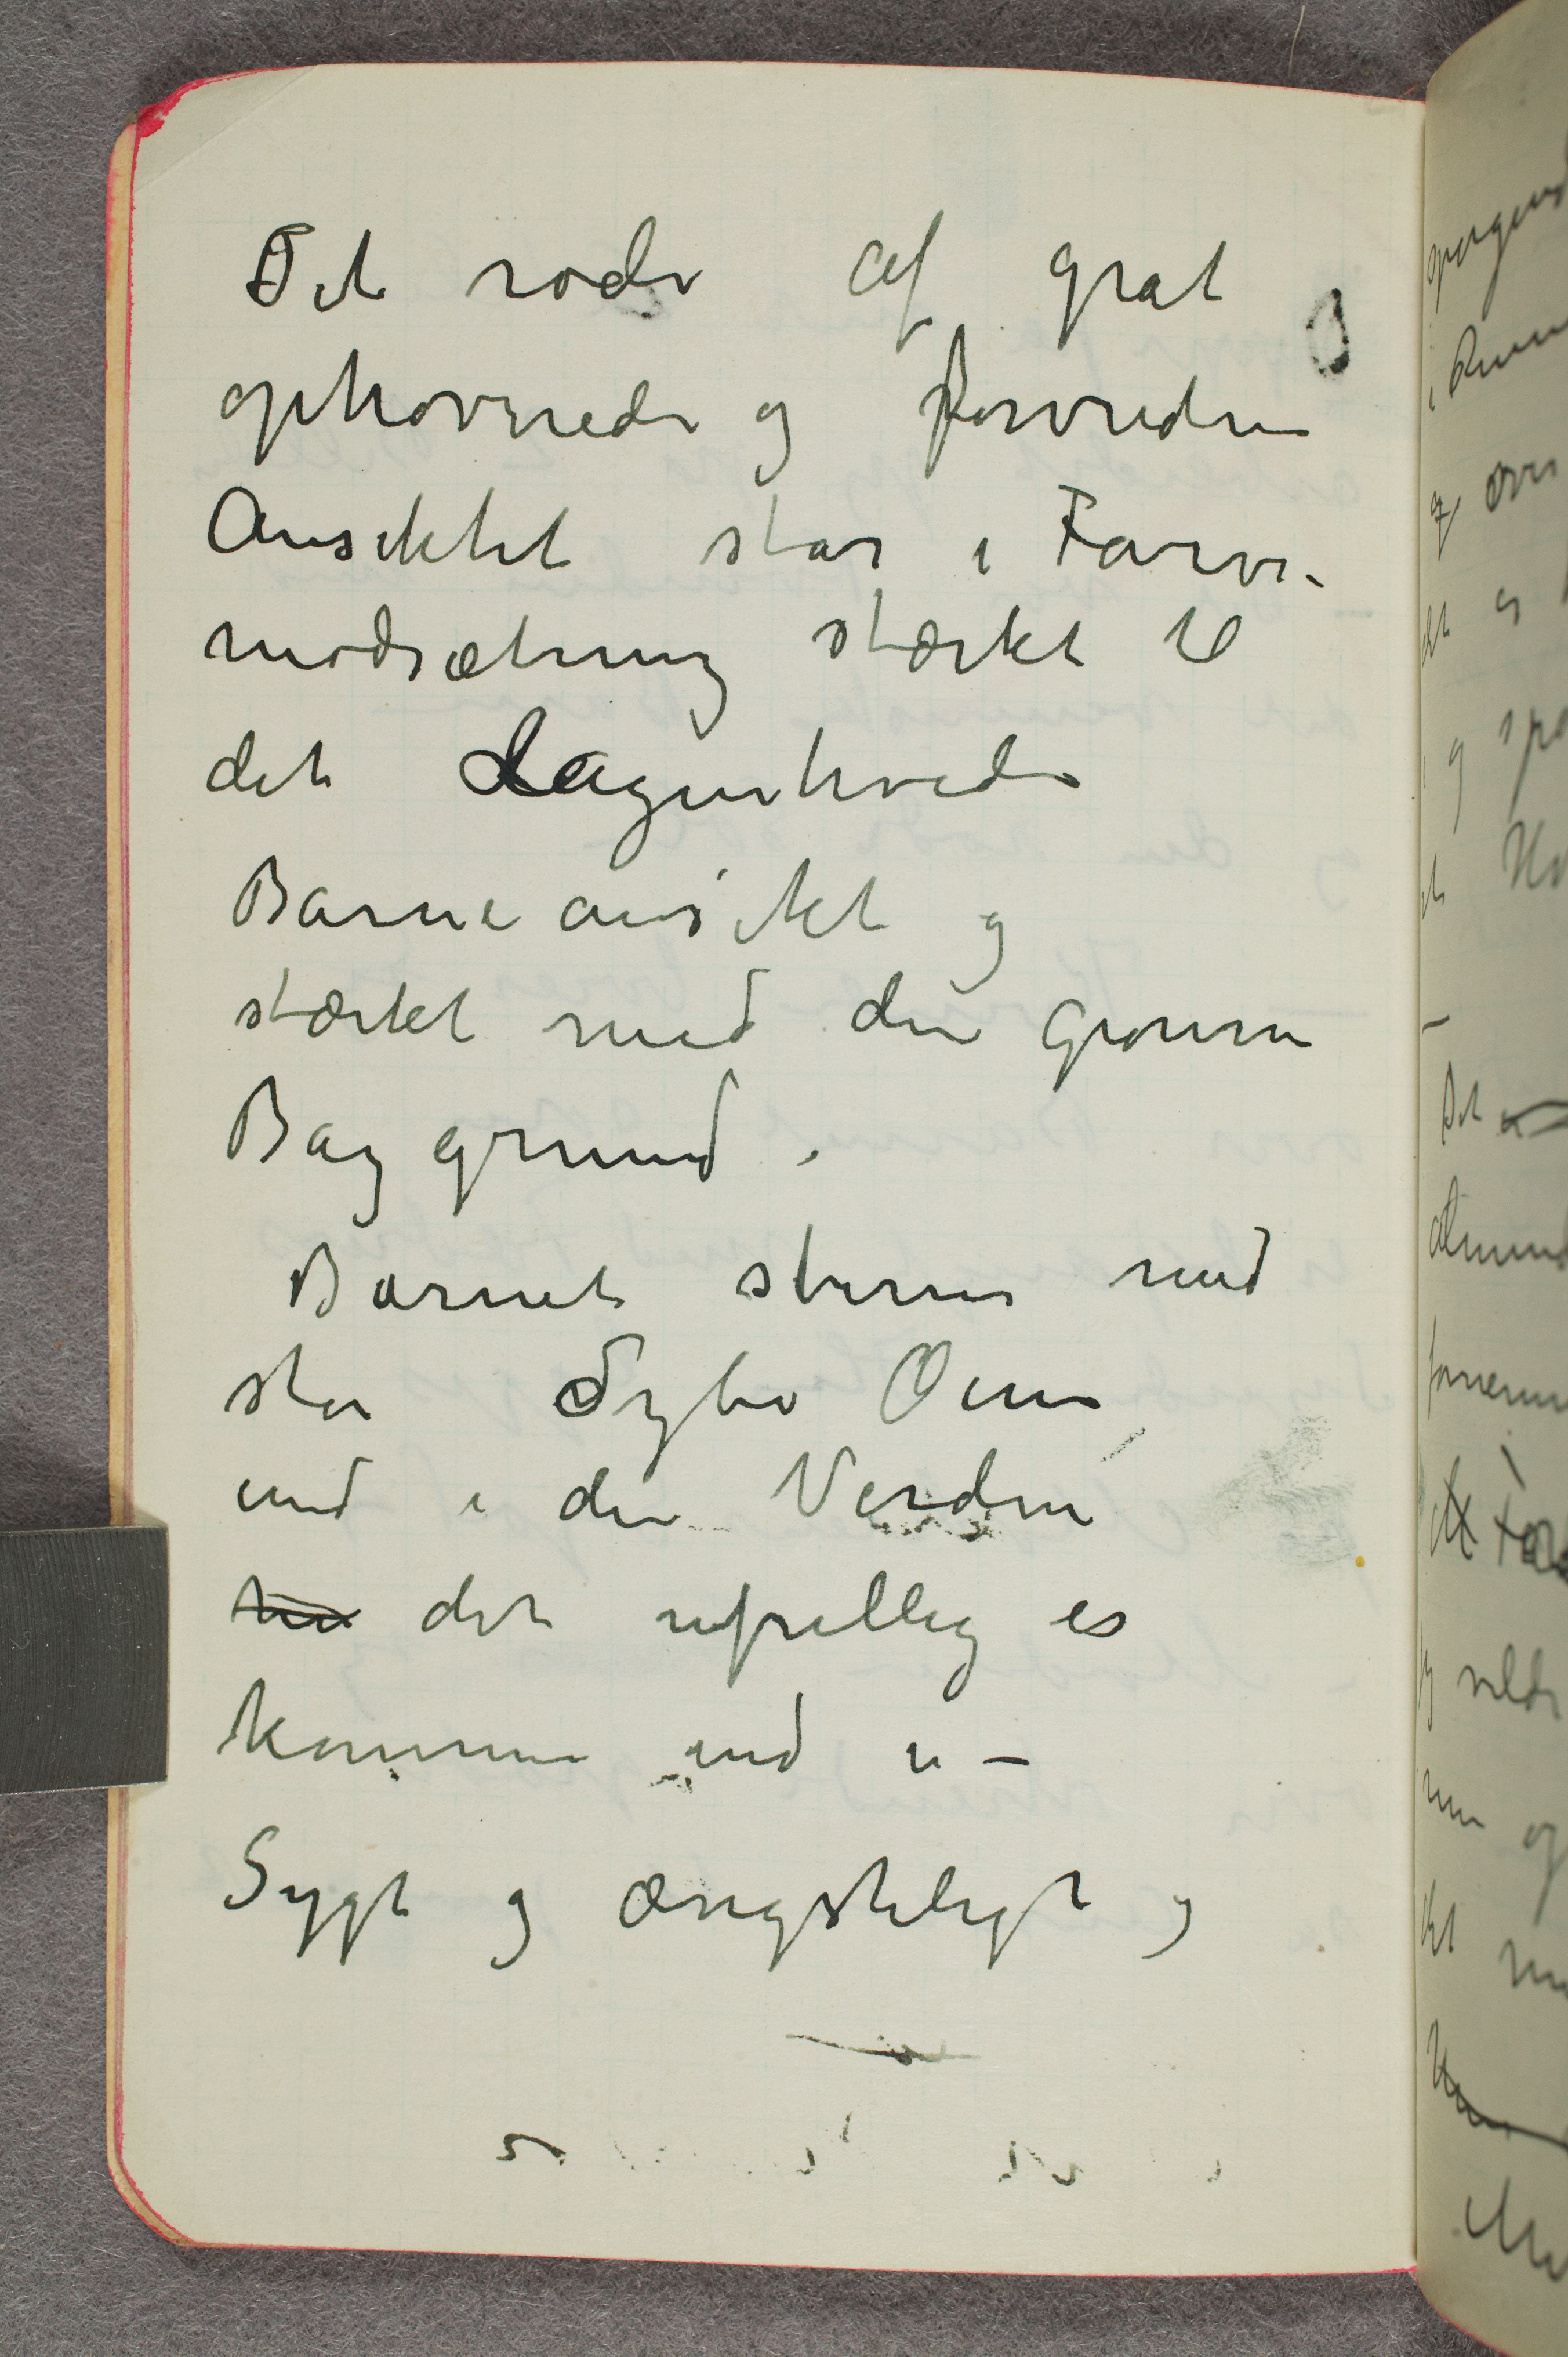 Det røde af gråt
ophovnede og forvredne
Ansiktet står i Farve-
modsætning stærkt til
det lagenhvide
Barneansikt og
stærkt med den grønne
Baggrund.
Barnet stirrer med
store dybe Øine
ind i den Verden
det ufrillig er
kommen ind i –
Sygt og ængsteligt og